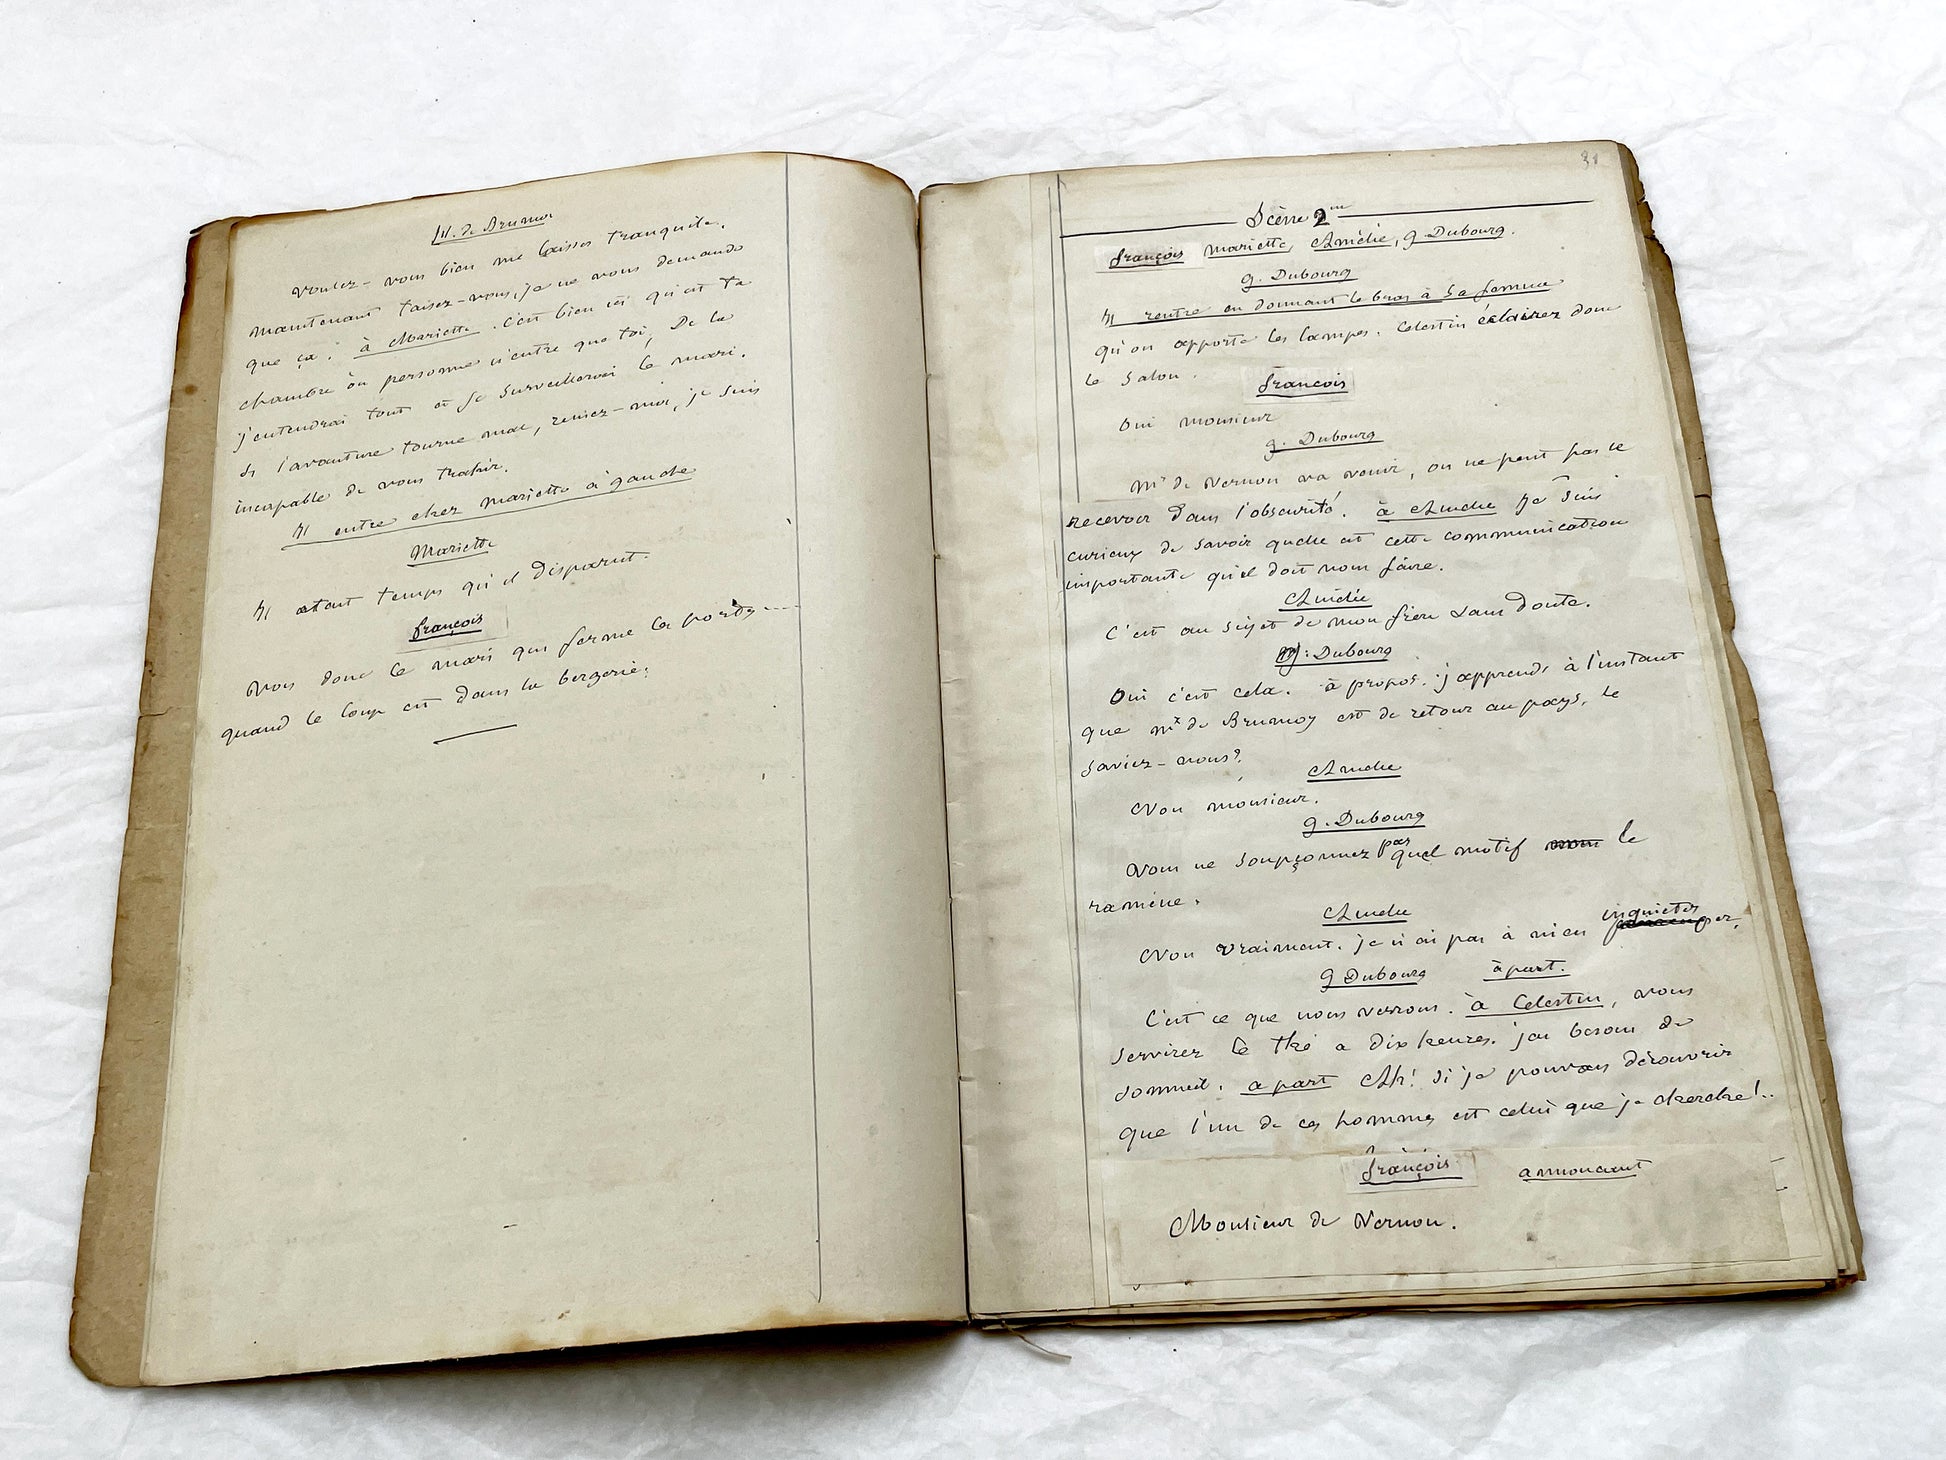 M. de Brumoy
Voulez-vous bien me laisser tranquile.
maintenant taisez-vous, je ne vous demande
que ça. à Mariette. C'est bien ici qu'est ta
chambre où personne n'entre que toi, De la
j'entendrai tout et je surveillerai le mari.
si l'avanture tourne mal, reniez-moi, je suis
incapable de vous trahir.
Il entre chez Mariette à gauche
Mariette
Il etait temps qu'il disparut.
françois
Vois donc le mari qui ferme la porte
quand le loup est dans la bergerie.
31
Scène 2me
françois Mariette, Amélie, g. Dubourg.
g. Dubourg
Il rentre en donnant le bras à sa femme
qu'on apporte les lampes. Celestin éclairez donc
le salon.
françois
Oui monsieur
g. Dubourg
Mr de Vernon va venir, on ne peut pas le
recevoir dans l'obscurité. à Amelie Je suis
curieux de savoir quelle est cette communication
importante qu'il doit nous faire.
Amélie
C'est au sujet de mon frère sans doute.
g. Dubourg
Oui c'est cela. à propos. j'apprends à l'instant
que Mr de Brumoy est de retour au pays, le
saviez-vous?
Amelie
Non monsieur.
g. Dubourg
Vous ne soupçonnez pas quel motif le
ramène.
Amelie
Non vraiment. je n'ai pas à m'en inquieter
g Dubourg à part.
C'est ce que nous verrons. à Celestin, vous
servirez le thé a dix heures. j'ai besoin de
sommeil. a part Ah! si je pouvais découvrir
que l'un de ces hommes est celui que je cherche!..
françois annoncant
Monsieur de Vernon.